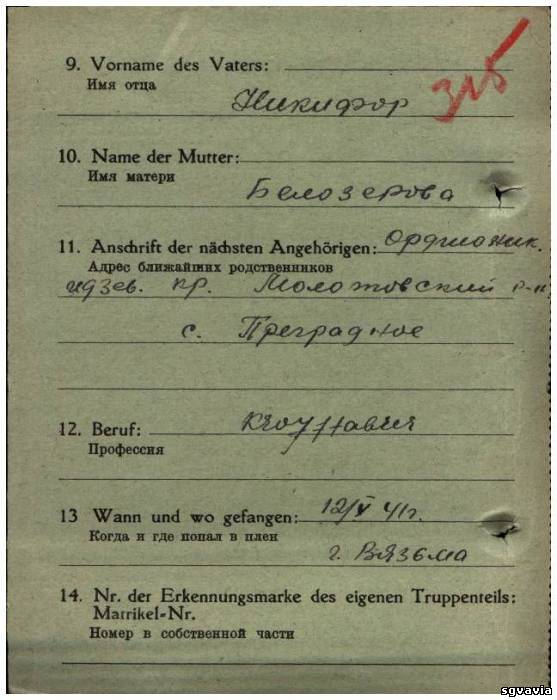 315
9. Vorname des Vaters:
Имя отца
Никифор
10. Name der Mutter:
Имя матери
Белозерова
11. Anschrift der nächsten Angehörigen: Орджоник.
Адрес ближайших родственников
идзев. кр. Молотовский р-н
с. Преградное
12. Beruf:
Профессия
13 Wann und wo gefangen: 12/X 41г.
Когда и где попал в плен
г. Вязьма
14. Nr. der Erkennungsmarke des eigenen Truppenteils:
Matrikel-Nr.
Номер в собственной части
sgvavia